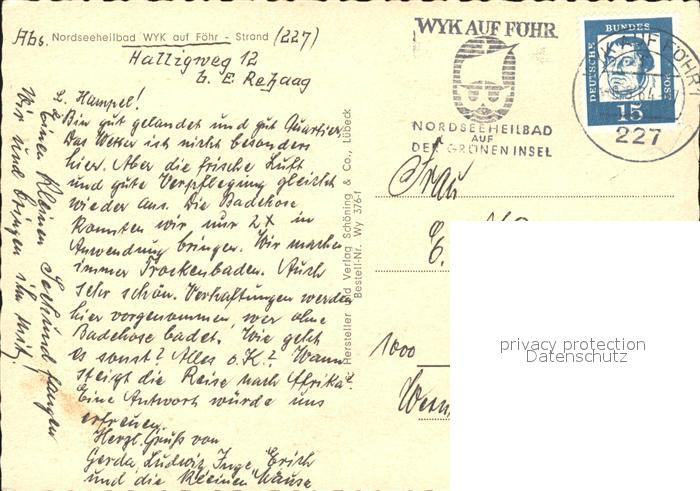 Abs. Nordseeheilbad WYK auf Föhr - Strand (227)
Halligweg 12
b. E. Rehaag
L. Hampel!
Bin gut gelandet und gut Quartier.
Das Wetter ist nicht besonders
hier. Aber die frische Luft
und gute Verpflegung gleicht
wieder aus. Die Badehose
konnten wir nur 2x in
Anwendung bringen. Wir machen
immer Trockenbaden. Auch
sehr schön. Verhaftungen werden
hier vorgenommen, wer ohne
Badehose badet. Wie geht
es sonst? Alles o.K.? Wann
steigt die Reise nach Afrika?
Eine Antwort würde uns
erfreuen.
Herzl. Gruß von
Gerda, Ludwig, Inge, Erich
und die kleinen Mäuse
Einen kleinen Seehund fangen
wir und bringen ihn mit!
Hersteller und Verlag Schöning & Co., Lübeck
Bestell-Nr. Wy 376-f
WYK AUF FÖHR
NORDSEEHEILBAD
AUF
DER GRÜNEN INSEL
WYK AUF FÖHR
227
DEUTSCHE BUNDESPOST
15
Frau
1000
privacy protection
Datenschutz